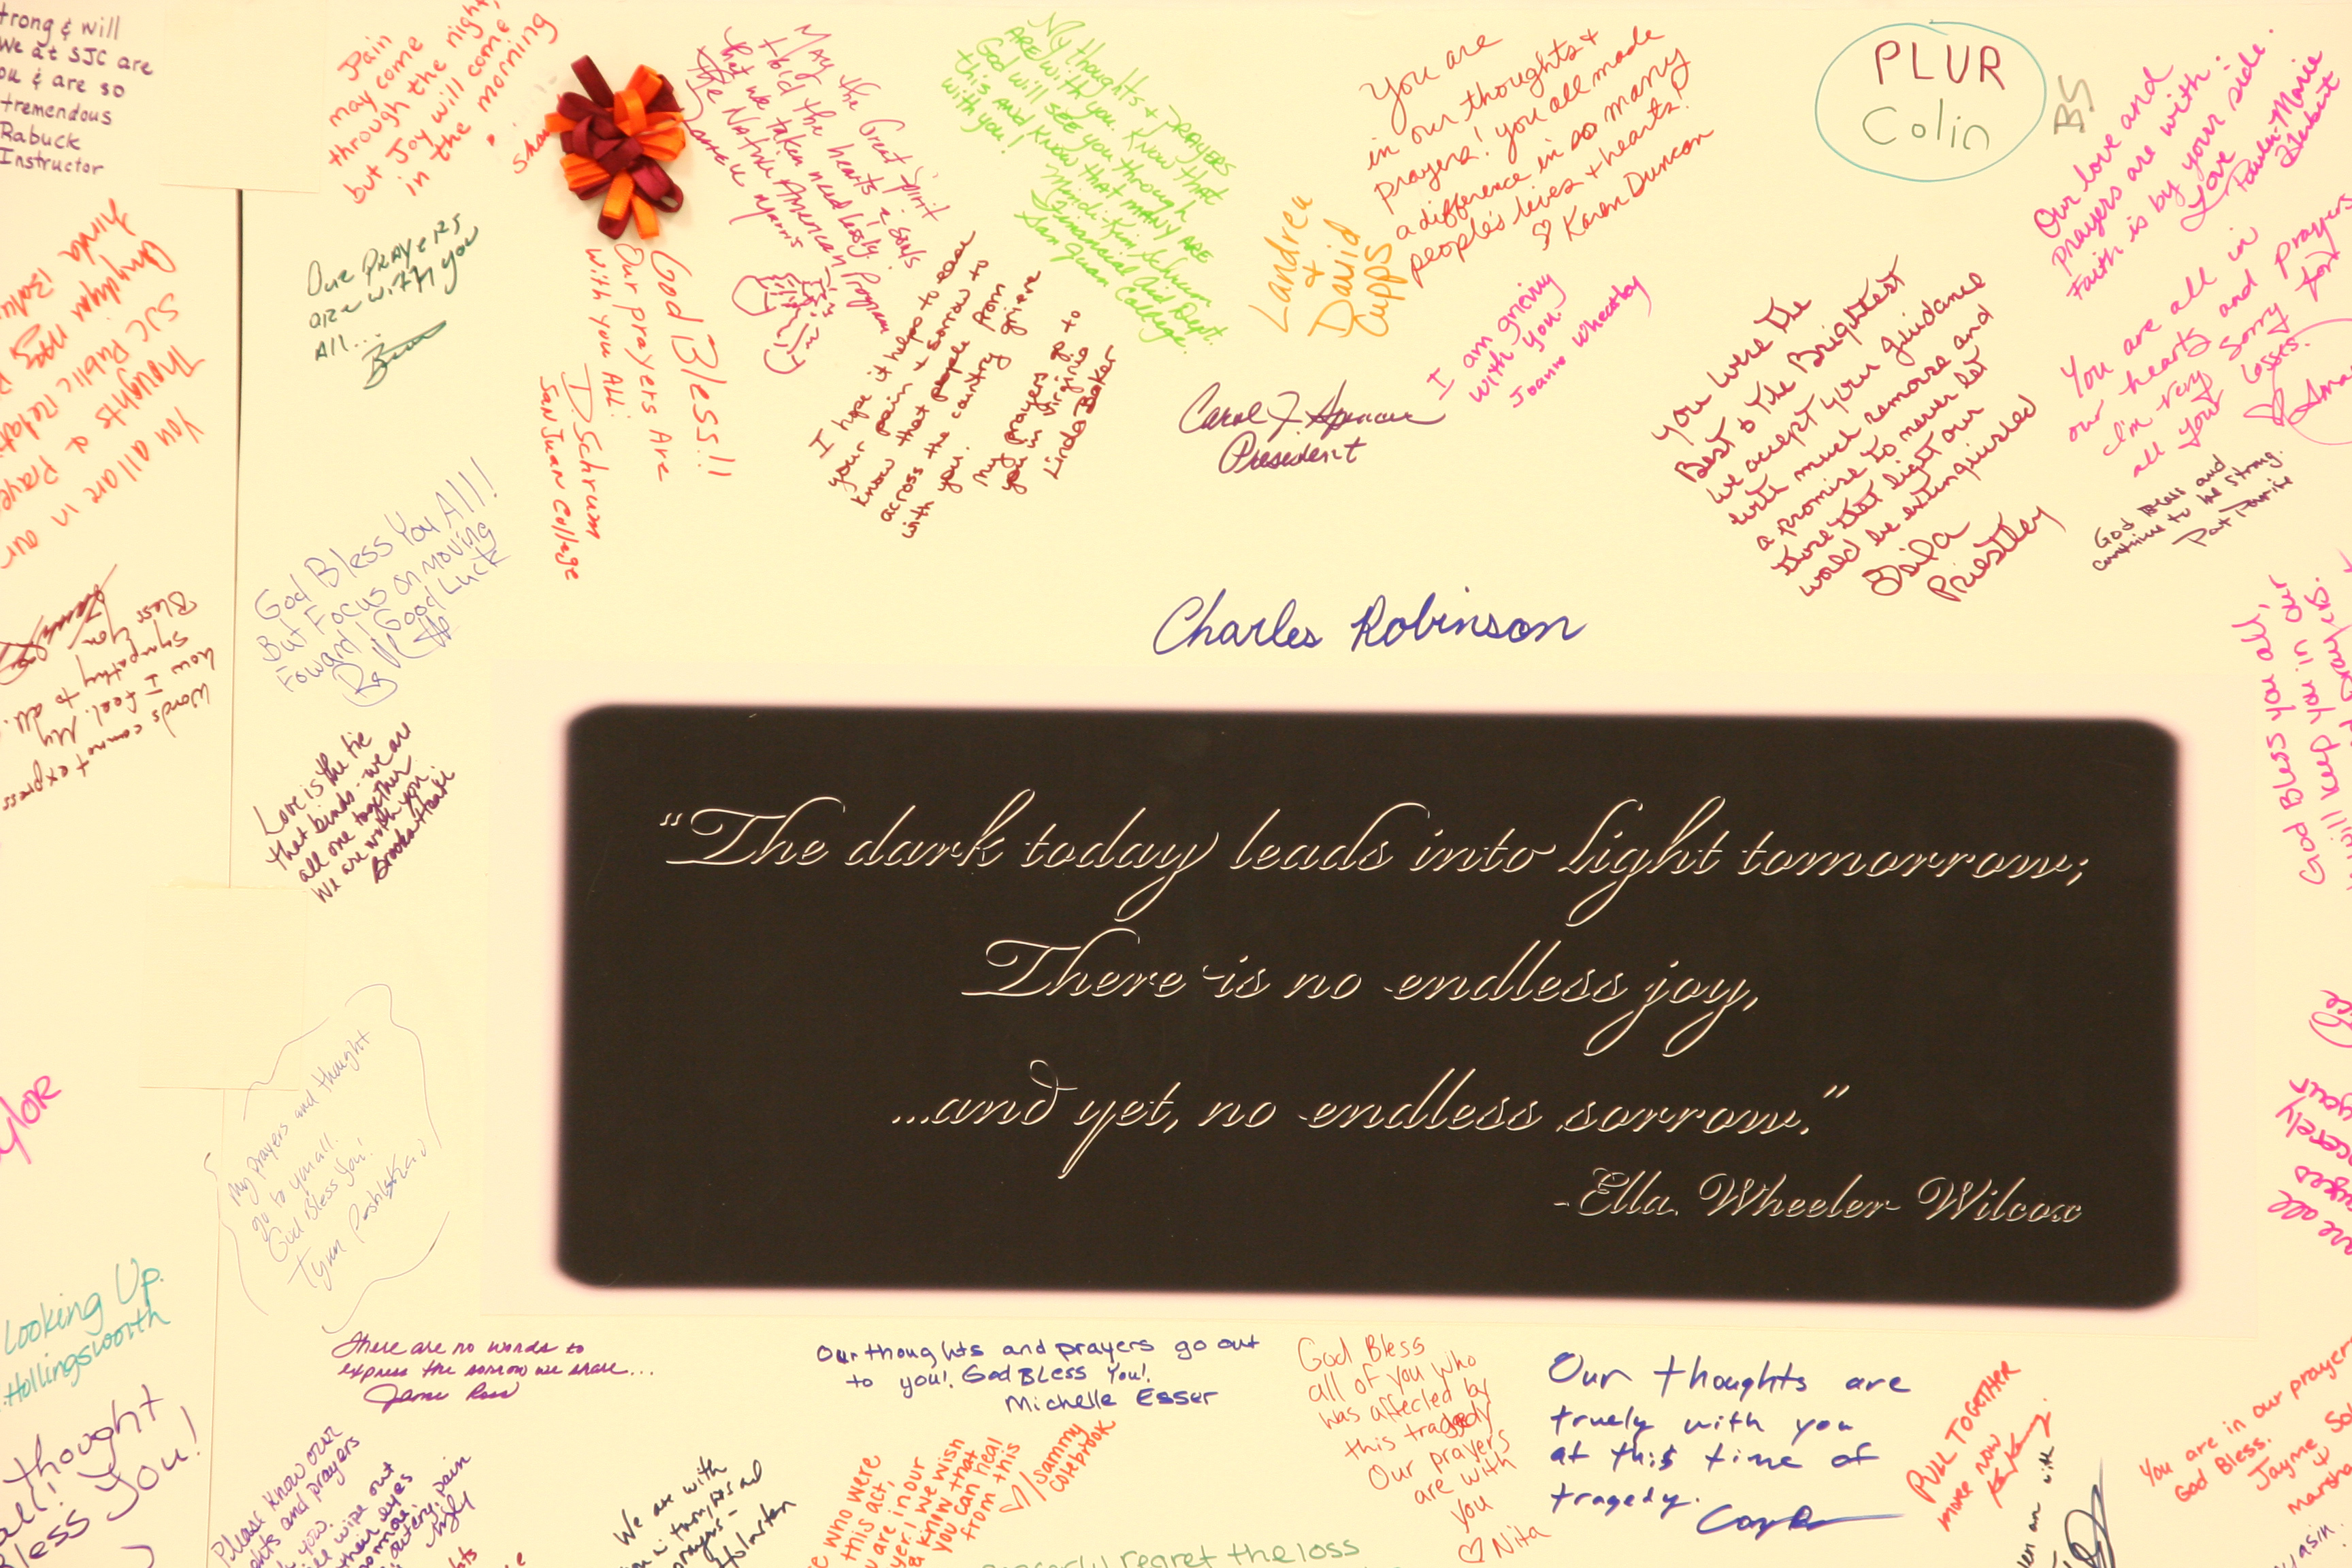 trong & will
We at SJC are
ou & are so
tremendous
Rabuck
Instructor
Pain
may come
through the night,
but Joy will come
in the morning
May the Great Spirit
hold the hearts & souls
that we taken needlessly.
The Native American Program
My thoughts & Prayers
ARE with you. Know that
God will see you through
this and know that many are
with you!
Mindi-Kim Schrum
Financial Aid Dept.
San Juan College.
You are
in our thoughts &
prayers! you all made
a difference in so many
people's lives & hearts!
Karen Duncan
PLUR
Colin
BS
Our love and
prayers are with:
Faith is by your side.
Love
Landrea
&
David
Cupps
Our Prayers
are with you
All...
God Bless!!
Our prayers Are
with you All.
D. Schrum
San Juan College
I hope it helps to ease
your pain & sorrow to
know that people from
across the country grieve
with you.
My prayers go to
you in Virginia
Linda Baker
I am grieving
with you.
Joann Wheatley
Carol J. Spencer
President
You were the
Best & the Brightest
We accept your guidance
with much remorse and
a promise to never let
those that light our
world be extinguished
Priestley
You are all in
our hearts and prayers
I'm very sorry for
all your losses.
God Bless and
continue to be strong.
You all are in our
Thoughts & Praye
SJC Public Relati
God Bless You All!
But Focus on moving
Foward! Good Luck
Charles Robinson
Words cannot express
how I feel. My
sympathy to all.
Bless you
God Bless you all,
will keep you in our
Love is the tie
that binds - we are
all one together
We are with you.
"The dark today leads into light tomorrow;
There is no endless joy,
...and yet, no endless sorrow."
-Ella Wheeler Wilcox
My prayers and thought
go to you all.
God Bless You!
ylor
Looking Up.
Hollingsworth
There are no words to
express the sorrow we share...
Our thoughts and prayers go out
to you!. God BLess You!.
Michelle Esser
God Bless
all of you who
was affected by
this tragedy
Our prayers
are with
you
Nita
Our thoughts are
truely with you
at this time of
tragedy.
PULL TOGETHER
more now
You are in our prayer
God Bless.
Jayme
thought
Bless You!
Please know our
and prayers
We are with
who were
this act,
are in our
we wish
know that
you can heal
from this
Sammy
Colebrook
regret the loss